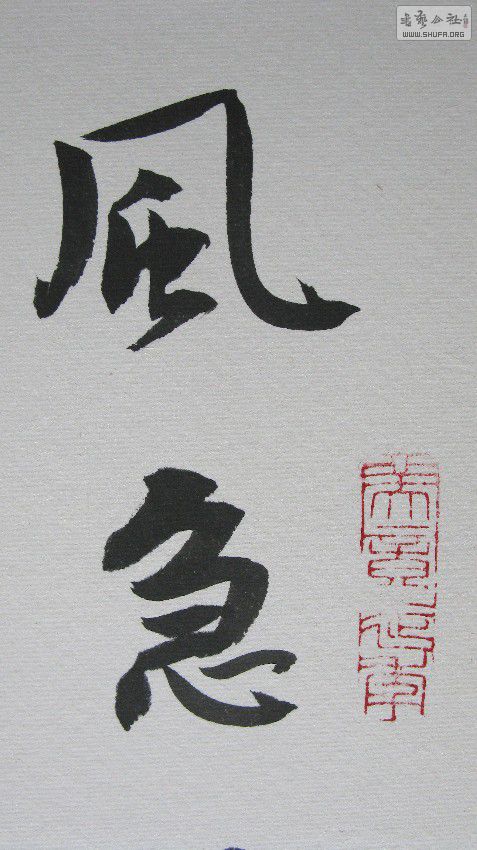 風
急
書法公社
WWW.SHUFA.ORG